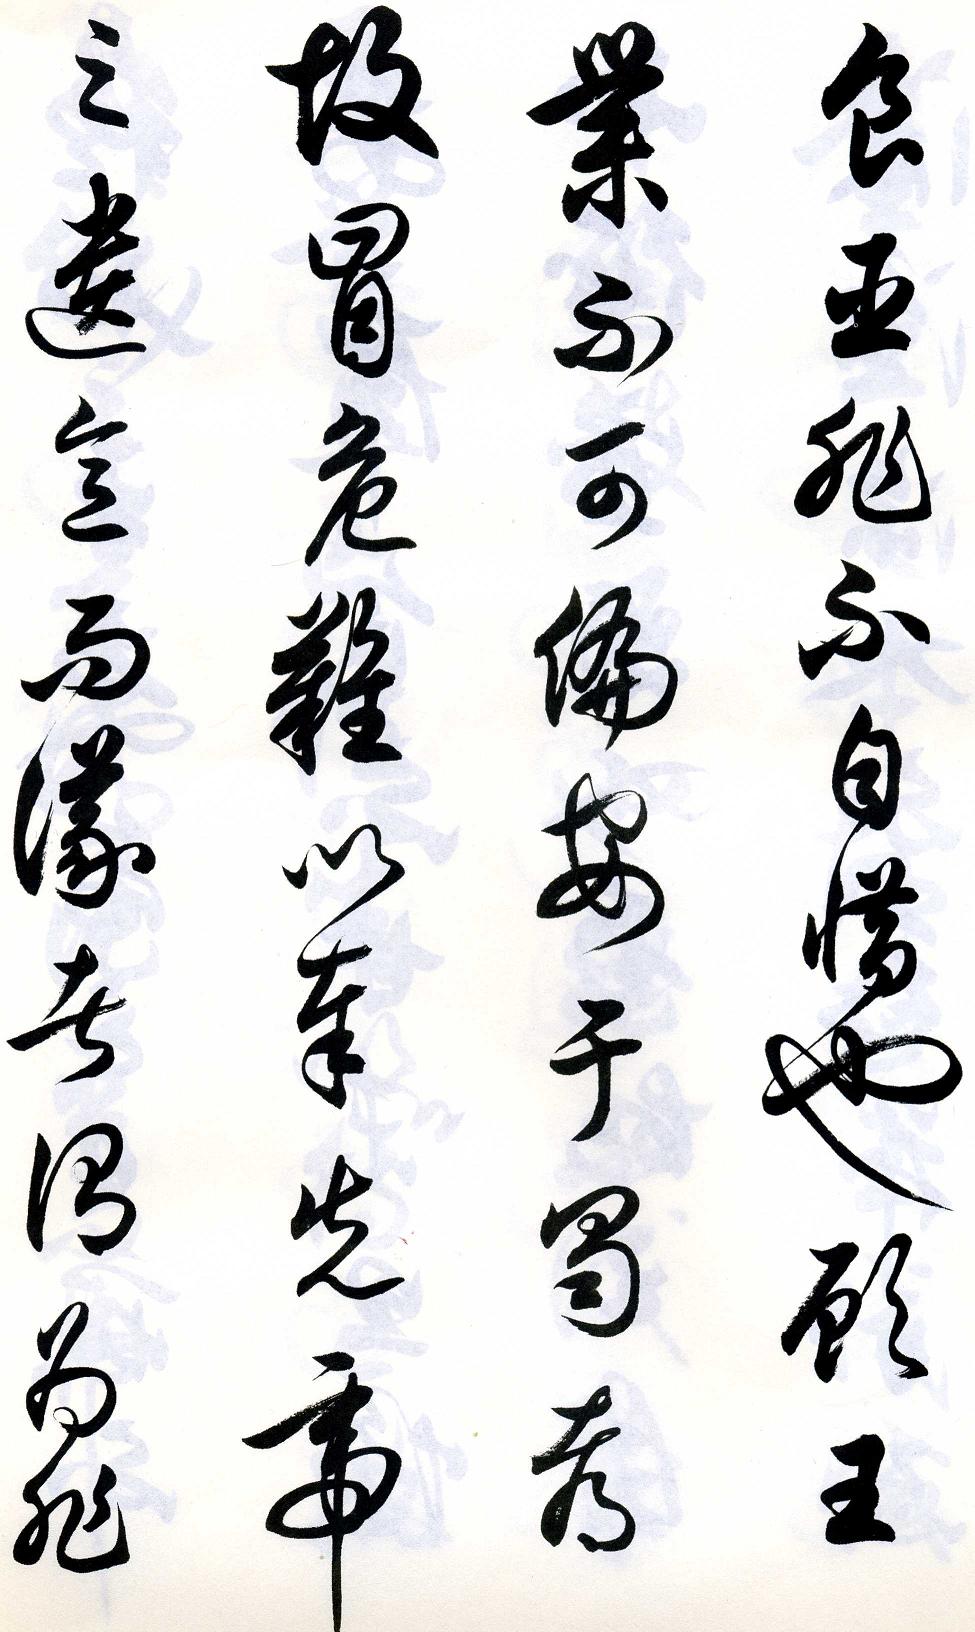 食臣非不自惜也顾王
業不可偏安于蜀都
故冒危難以奉先帝
之遺意而議者謂為非